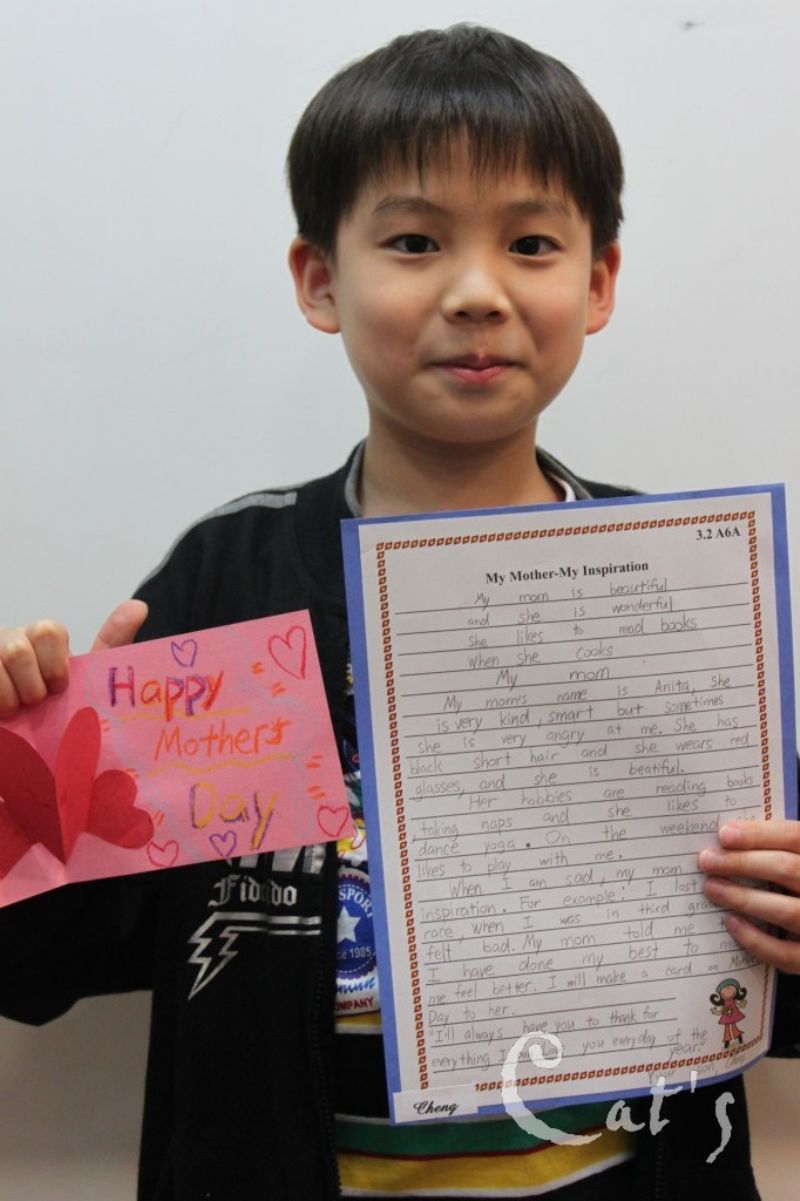 Happy
Mother's
Day
Fido dido
SPORT
Since 1985
COMPANY
3.2 A6A
My Mother-My Inspiration
My mom is beautiful
and she is wonderful
She likes to read books
when she cooks
My mom
My mom's name is Anita, she
is very kind, smart but sometimes
she is very angry at me. She has
black short hair and she wears red
glasses, and she is beatiful.
Her hobbies are reading books
, taking naps and she likes to
dance yoga. On the weekend she
likes to play with me.
When I am sad, my mom
inspiration. For example: I lost
race, when I was in third
felt bad. My mom told me
I have done my best to
me feel better. I will make a card on Mother
Day to her.
"I'll always have you to thank for
everything I you everyday of the
year."
Your son,
Cheng
Cat's